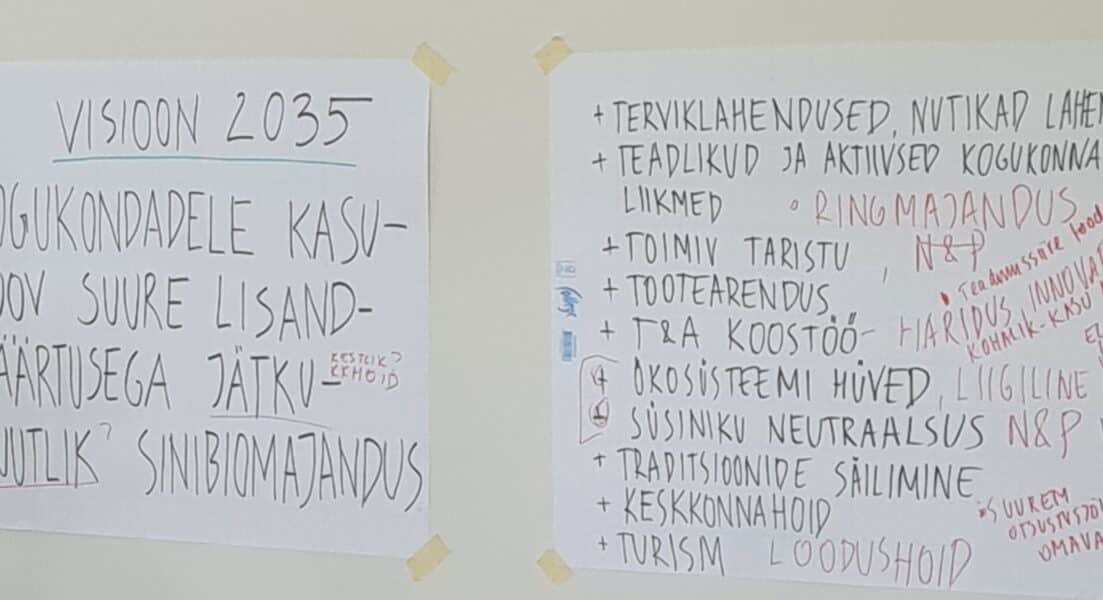 VISIOON 2035
OGUKONDADELE KASU-
OOV SUURE LISAND-
ÄÄRTUSEGA JÄTKU-
KESTLIK?
UUTLIK? SINIBIOMAJANDUS
+ TERVIKLAHENDUSED, NUTIKAD LAHEN
+ TEADLIKUD JA AKTIIVSED KOGUKONNA
LIIKMED ° RINGMAJANDUS
+ TOIMIV TARISTU, N&P
+ TOOTEARENDUS
+ T&A KOOSTÖÖ - HARIDUS, INNOVAT
KOHALIK-KASU
+ ÖKOSÜSTEEMI HÜVED, LIIGILINE
+ SÜSINIKU NEUTRAALSUS N&P
+ TRADITSIOONIDE SÄILIMINE
+ KESKKONNAHOID
SUUREM
OTSUSTUSJÕU
OMAVA
+ TURISM LOODUSHOID